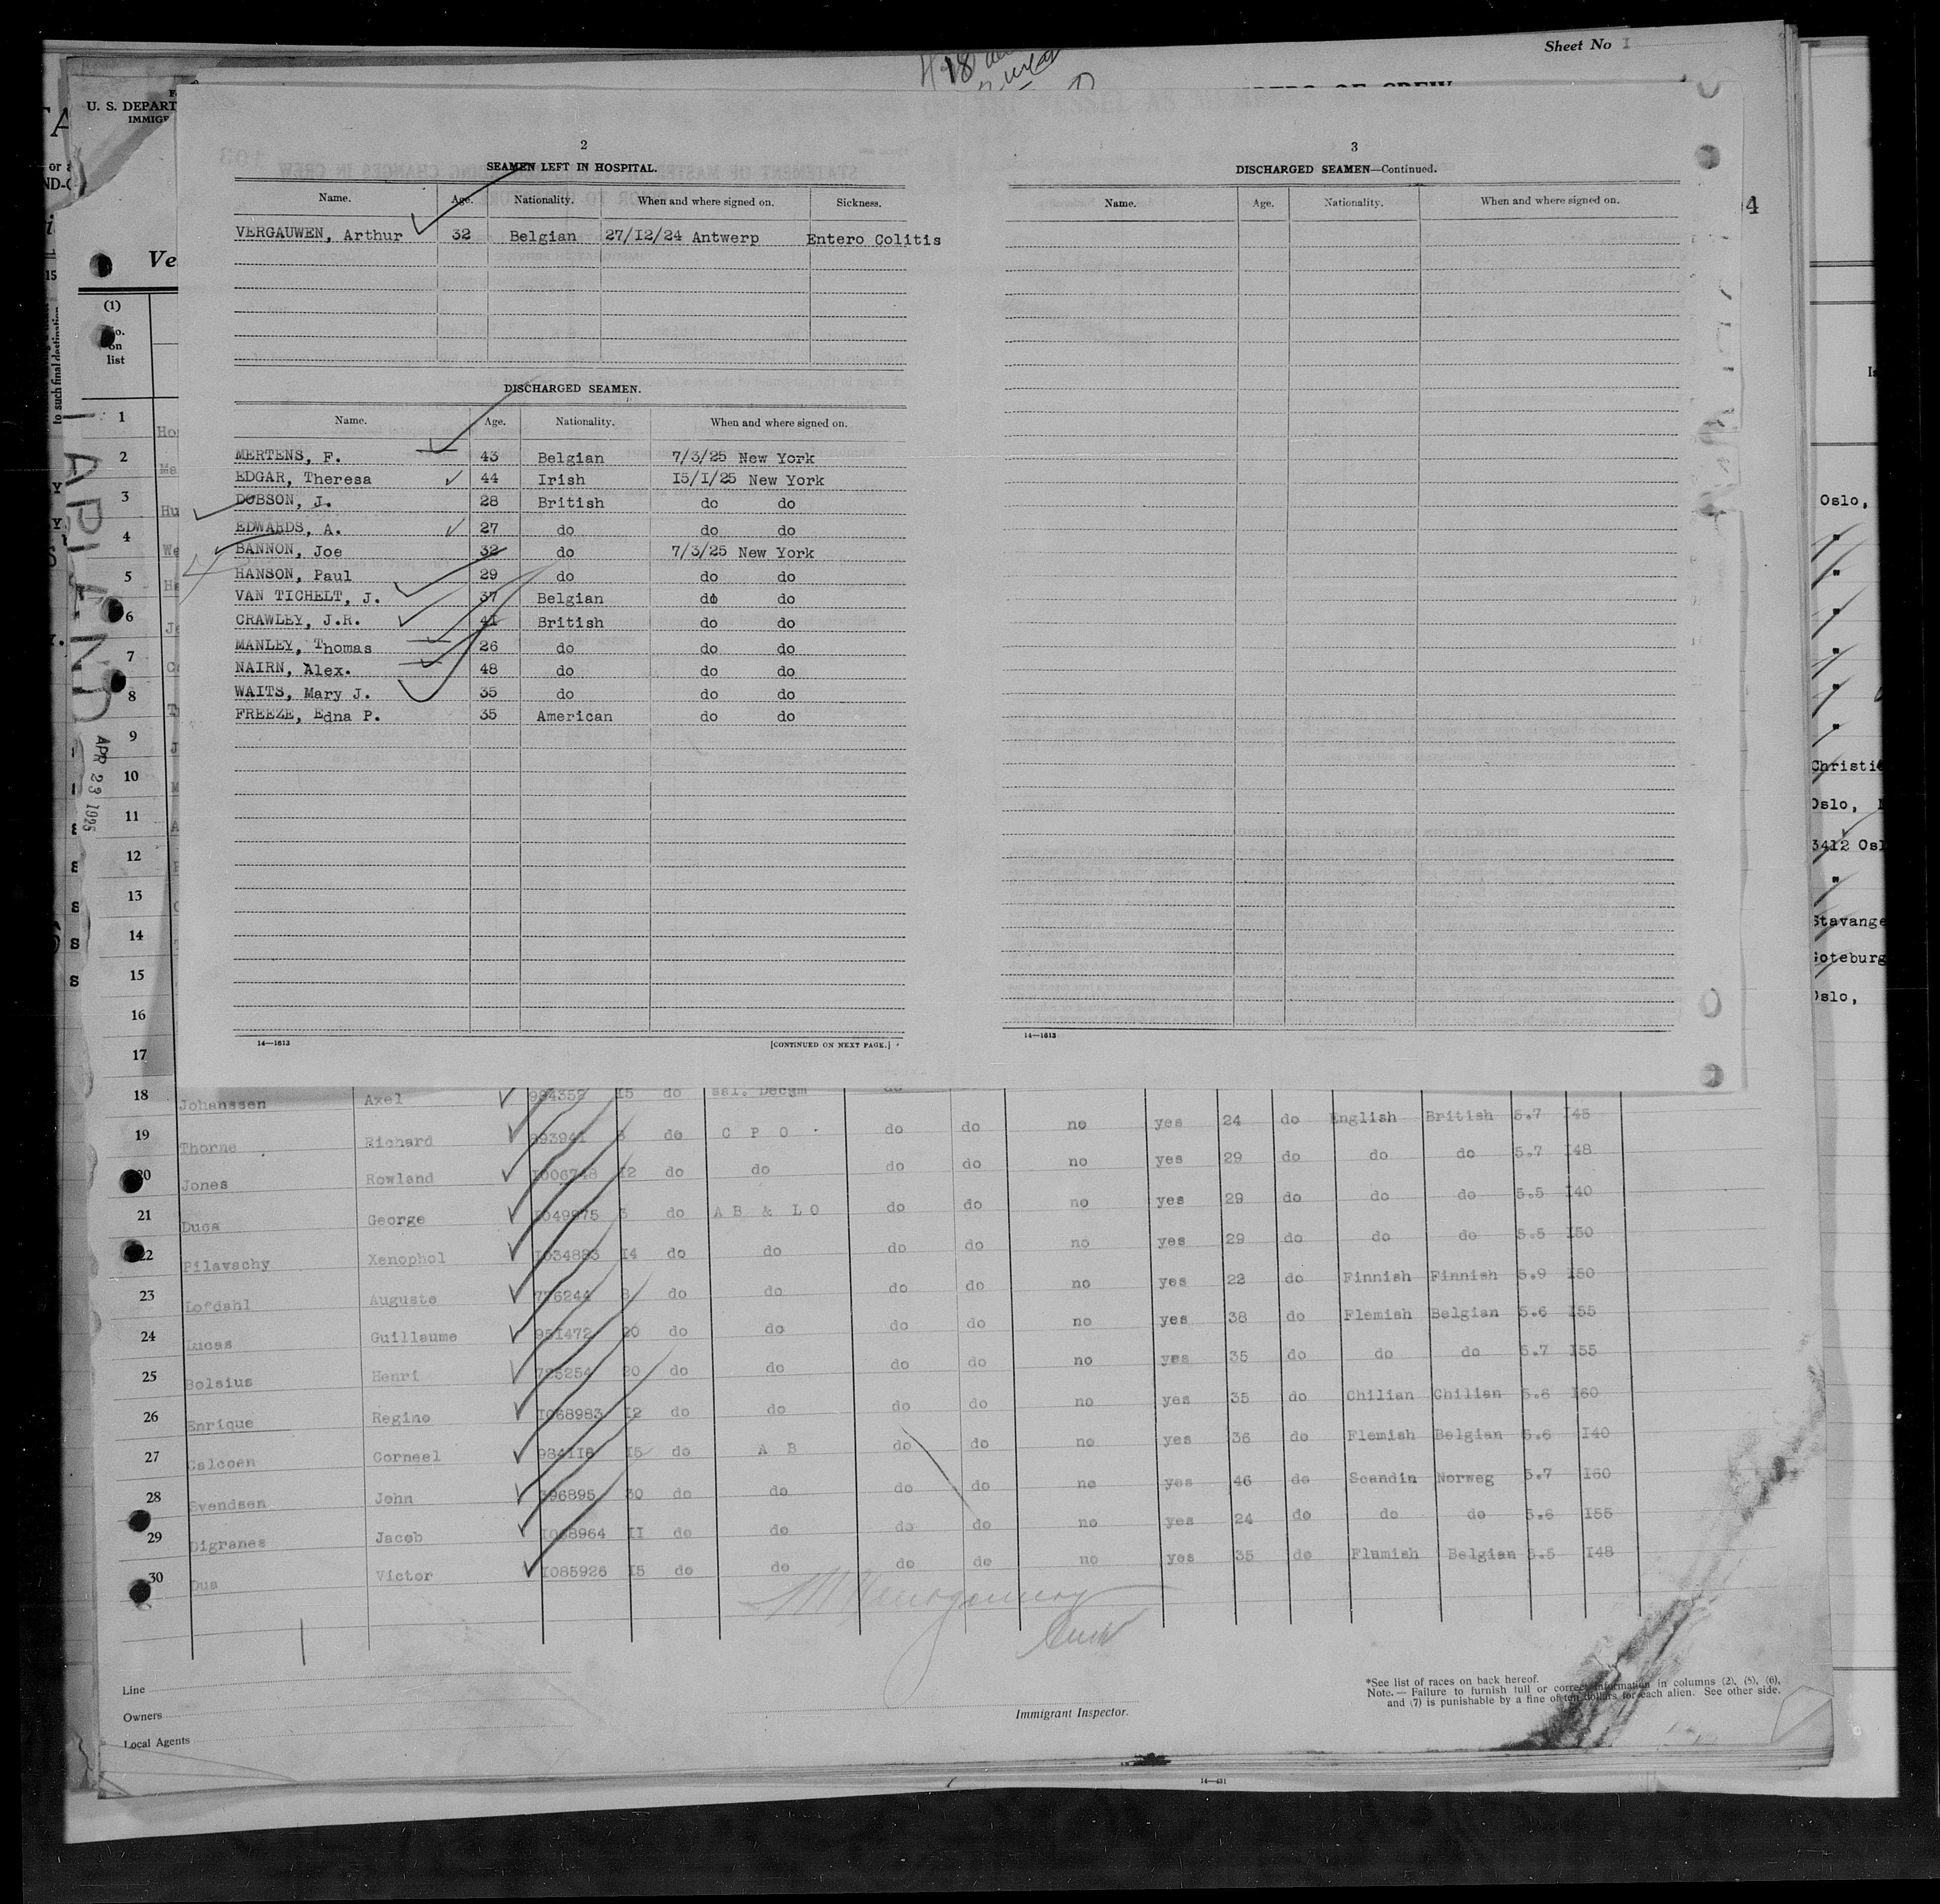 Sheet No I
U. S. DEPART
IMMIGR
2
SEAMEN LEFT IN HOSPITAL.
Name. Age. Nationality. When and where signed on. Sickness.
VERGAUWEN, Arthur 32 Belgian 27/I2/24 Antwerp Entero Colitis
DISCHARGED SEAMEN.
Name. Age. Nationality. When and where signed on.
MERTENS, F. 43 Belgian 7/3/25 New York
EDGAR, Theresa 44 Irish I5/I/25 New York
DOBSON, J. 28 British do do
EDWARDS, A. 27 do do do
BANNON, Joe 32 do 7/3/25 New York
HANSON, Paul 29 do do do
VAN TICHELT, J. 37 Belgian do do
CRAWLEY, J.R. 41 British do do
MANLEY, Thomas 26 do do do
NAIRN, Alex. 48 do do do
WAITS, Mary J. 35 do do do
FREEZE, Edna P. 35 American do do
14—1613 [CONTINUED ON NEXT PAGE.]
3
DISCHARGED SEAMEN—Continued.
Name. Age. Nationality. When and where signed on.
14—1613
4
Ve
(1)
No.
on
list
1
2
3
4
5
6
7
8
9
10
11
12
13
14
15
16
17
LAPLAND
APR 23 1925
to such final destination
Oslo,
Christi
Oslo,
3412 Osl
Stavange
Goteburg
Oslo,
18 Johanssen Axel 994359 I5 do ssl. Decqm do
19 Thorne Richard 993941 3 do C P O do do no yes 24 do English British 5.7 I45
20 Jones Rowland I006748 I2 do do do do no yes 29 do do do 5.7 I48
21 Duca George I049975 3 do A B & L O do do no yes 29 do do do 5.5 I40
22 Pilavschy Xenophol I034883 I4 do do do do no yes 29 do do do 5.5 I50
23 Lofdahl Auguste 776244 8 do do do do no yes 22 do Finnish Finnish 5.9 I50
24 Lucas Guillaume 951472 20 do do do do no yes 38 do Flemish Belgian 5.6 I55
25 Bolsius Henri 725254 20 do do do do no yes 35 do do do 5.7 I55
26 Enrique Regino I068983 I2 do do do do no yes 35 do Chilian Chilian 5.6 I60
27 Calcoen Corneel 984II8 I5 do A B do do no yes 36 do Flemish Belgian 5.6 I40
28 Svendsen John 396895 30 do do do do no yes 46 do Scandin Norweg 5.7 I60
29 Digranes Jacob I068964 II do do do do no yes 24 do do do 5.6 I55
30 Dua Victor I085926 I5 do do do do no yes 35 do Flumish Belgian 5.5 I48
Line
Owners
Local Agents
Immigrant Inspector.
*See list of races on back hereof.
Note.— Failure to furnish full or correct information in columns (2), (5), (6),
and (7) is punishable by a fine of ten dollars for each alien. See other side.
14—431